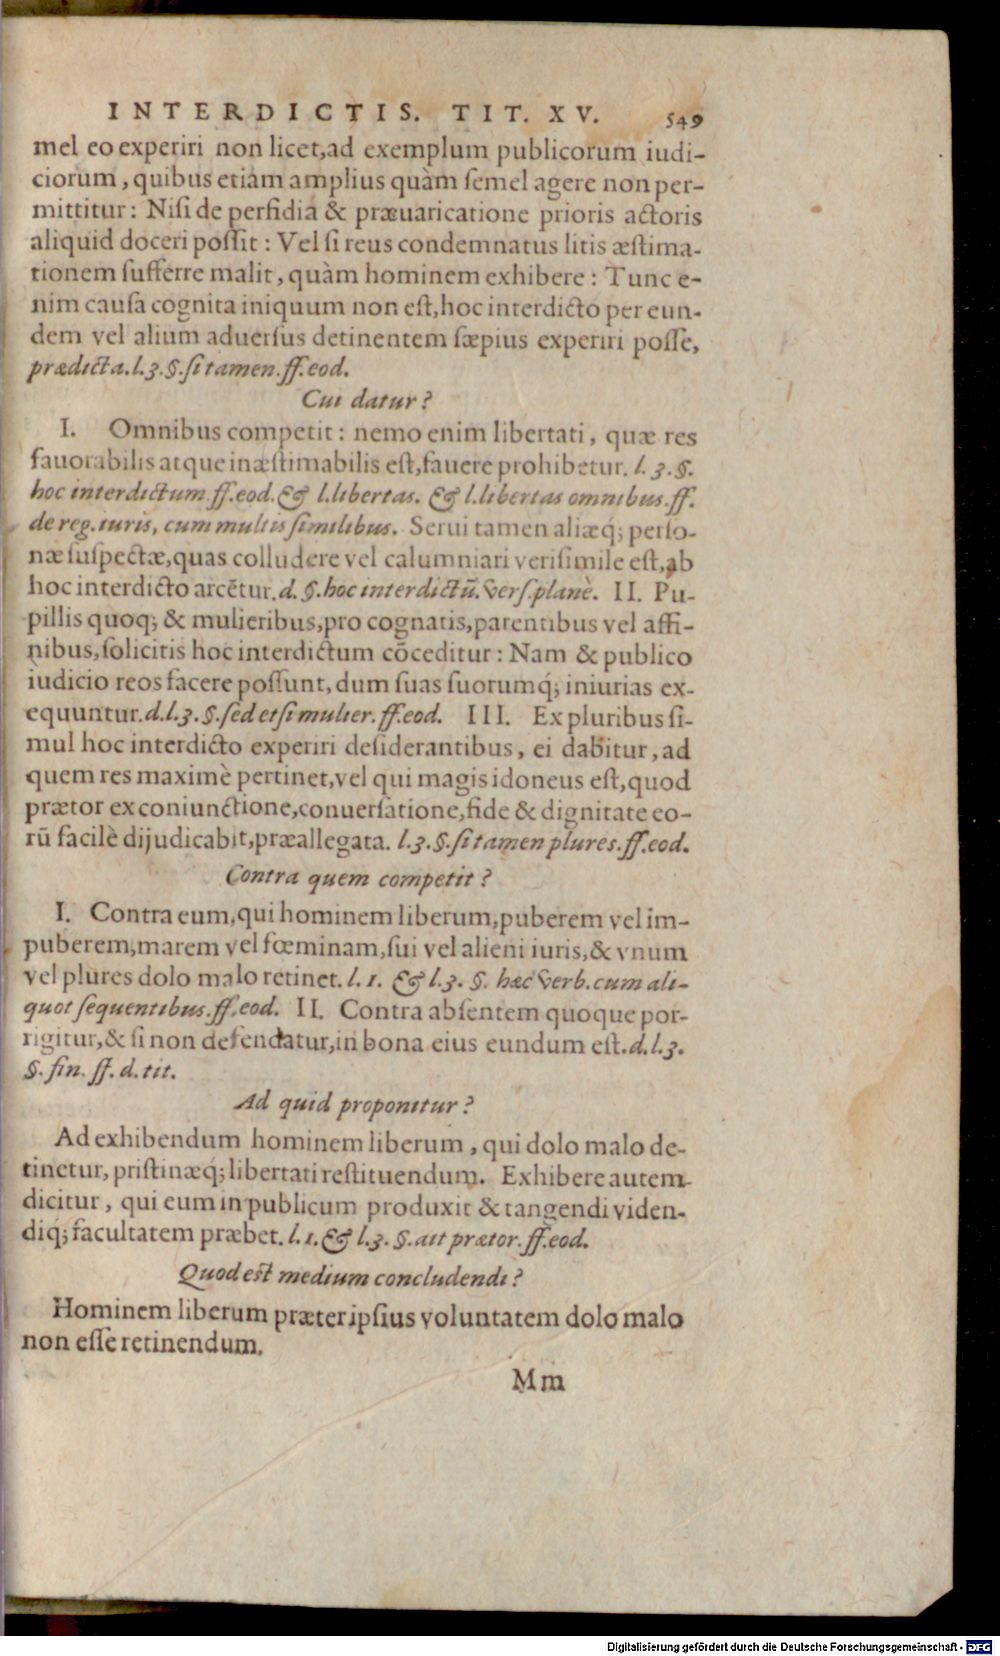 INTERDICTIS. TIT. XV. 549
mel eo experiri non licet, ad exemplum publicorum iudi-
ciorum, quibus etiam amplius quàm semel agere non per-
mittitur: Nisi de perfidia & præuaricatione prioris actoris
aliquid doceri possit: Vel si reus condemnatus litis æstima-
tionem sufferre malit, quàm hominem exhibere: Tunc e-
nim causa cognita iniquum non est, hoc interdicto per eun-
dem vel alium aduersus detinentem sæpius experiri posse,
prædicta. l.3.§. si tamen. ff. eod.
Cui datur?
I. Omnibus competit: nemo enim libertati, quæ res
fauorabilis atque inæstimabilis est, fauere prohibetur. l. 3. §.
hoc interdictum. ff. eod. & l. libertas. & l. libertas omnibus. ff.
de reg. iuris, cum multis similibus. Serui tamen aliæq; perso-
næ suspectæ, quas colludere vel calumniari verisimile est, ab
hoc interdicto arcētur. d. §. hoc interdictū. vers. planè. II. Pu-
pillis quoq; & mulieribus, pro cognatis, parentibus vel affi-
nibus, solicitis hoc interdictum cōceditur: Nam & publico
iudicio reos facere possunt, dum suas suorumq́; iniurias ex-
equuntur. d. l.3. §. sed et si mulier. ff. eod. III. Ex pluribus si-
mul hoc interdicto experiri desiderantibus, ei dabitur, ad
quem res maximè pertinet, vel qui magis idoneus est, quod
prætor ex coniunctione, conuersatione, fide & dignitate eo-
rū facilè dijudicabit, præallegata. l.3. §. si tamen plures. ff. eod.
Contra quem competit?
I. Contra eum, qui hominem liberum, puberem vel im-
puberem, marem vel fœminam, sui vel alieni iuris, & vnum
vel plures dolo malo retinet. l. 1. & l.3. §. hæc verb. cum ali-
quot sequentibus. ff. eod. II. Contra absentem quoque por-
rigitur, & si non defendatur, in bona eius eundum est. d. l.3.
§. fin. ff. d. tit.
Ad quid proponitur?
Ad exhibendum hominem liberum, qui dolo malo de-
tinetur, pristinæq́; libertati restituendum. Exhibere autem
dicitur, qui eum in publicum produxit & tangendi viden-
diq́; facultatem præbet. l. 1. & l.3. §. ait prætor. ff. eod.
Quod est medium concludendi?
Hominem liberum præter ipsius voluntatem dolo malo
non esse retinendum.
Mm
Digitalisierung gefördert durch die Deutsche Forschungsgemeinschaft - DFG